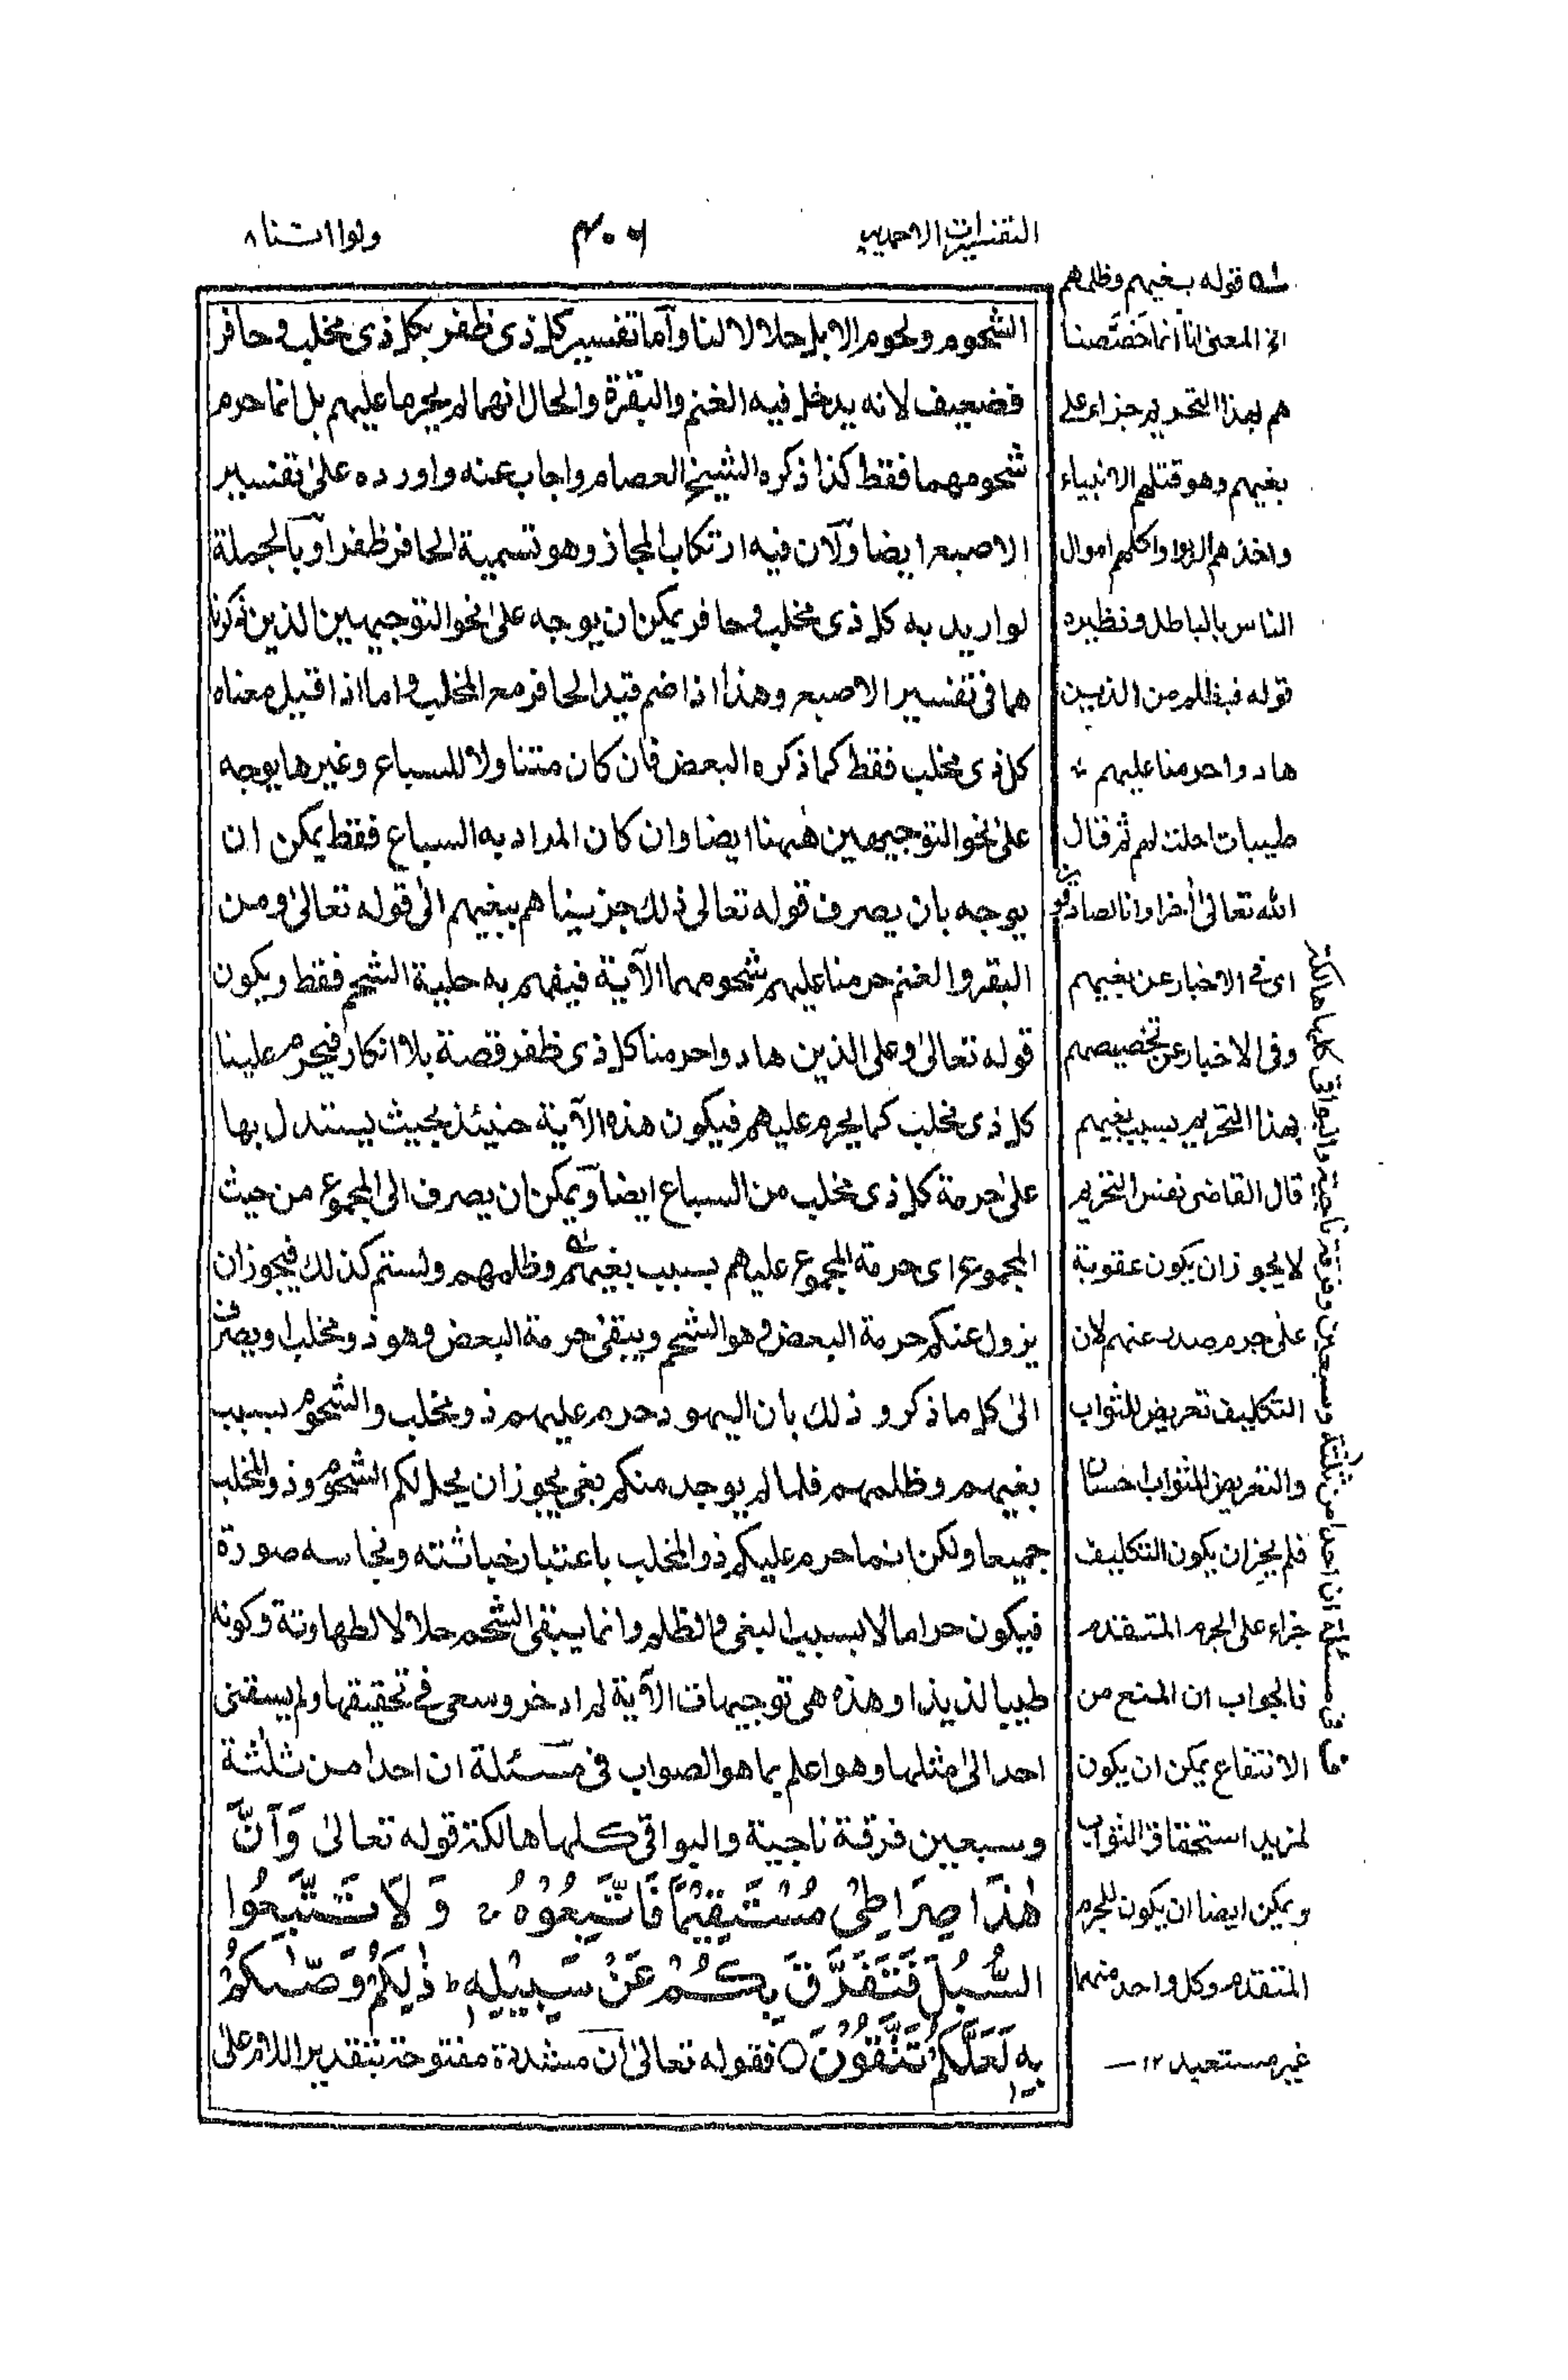 التفسيرات الاحمدية
٤٠٦
ولو اننا ٨
الشحوم ولحوم الابل حلالا لنا وأما تفسير كل ذى ظفر بكل ذى مخلب وحافر
فضعيف لانه يدخل فيه الغنم والبقرة والحال انهما لم يحرما عليهم بل انما حرم
شحومهما فقط كذا ذكره الشيخ العصام واجاب عنه واورده على تفسير
الاصبع ايضا ولان فيه ارتكاب المجاز وهو تسمية الحافر ظفرا وبالجملة
لو اريد به كل ذى مخلب وحافر يمكن ان يوجه على نحو التوجيهين الذين ذكرنا
هما فى تفسير الاصبع وهذا اذا ضم قيد الحافر مع المخلب واما اذا قيل معناه
كل ذى مخلب فقط كما ذكره البعض فان كان متناولا للسباع وغيرها يوجه
على نحو التوجيهين ههنا ايضا وان كان المراد به السباع فقط يمكن ان
يوجه بان يصرف قوله تعالى ذلك جزيناهم ببغيهم الى قوله تعالى ومن
البقر والغنم حرمنا عليهم شحومهما الآية فيفهم به حلية الشحم فقط ويكون
قوله تعالى وعلى الذين هادوا حرمنا كل ذى ظفر قصة بلا انكار فيحرم علينا
كل ذى مخلب كما يحرم عليهم فيكون هذه الآية حينئذ بحيث يستدل بها
على حرمة كل ذى مخلب من السباع ايضا ويمكن ان يصرف الى المجموع من حيث
المجموع اى حرمة المجموع عليهم بسبب بغيهم وظلمهم ولستم كذلك فيجوز ان
يزول عنكم حرمة البعض وهو الشحم ويبقى حرمة البعض وهو ذو مخلب او يصرف
الى كل ما ذكر و ذلك بان اليهود حرم عليهم ذو مخلب والشحوم بسبب
بغيهم وظلمهم فلما لم يوجد منكم بغى يجوز ان يحل لكم الشحوم وذو المخلب
جميعا ولكن انما حرم عليكم ذو المخلب باعتبار خباثته ونجاسه صورة
فيكون حراما لا بسبب البغى والظلم وانما يبقى الشحم حلالا لطهاوتة وكونه
طيبا لذيذا وهذه هى توجيهات الآية لم ادخر وسعى فى تحقيقها ولم يسقنى
احد الى مثلها وهو اعلم بما هو الصواب فى مسئلة ان احدا من ثلثة
وسبعين فرقة ناجية والبواقى كلها هالكة قوله تعالى وَأَنَّ
هٰذَا صِرَاطِىْ مُسْتَقِيْمًا فَاتَّبِعُوْهُ وَلَا تَتَّبِعُوا
السُّبُلَ فَتَفَرَّقَ بِكُمْ عَنْ سَبِيْلِهٖ ط ذٰلِكُمْ وَصّٰىكُمْ
بِهٖ لَعَلَّكُمْ تَتَّقُوْنَ ○ فقوله تعالى ان مشددة مفتوحة بتقدير اللام على
له قوله ببغيهم وظلمهم
اى المعنى انا انما خصّصنا
هم بهذا التحريم جزاء على
بغيهم وهو قتلهم الانبياء
واخذهم الربوا واكلهم اموال
الناس بالباطل ونظيره
قوله فبظلم من الذين
هادوا حرمنا عليهم
طيبات احلت لهم ثم قال
الله تعالى أخرا وانا لصادقون
اى فى الاخبار عن بغيهم
وفى الاخبار عن تخصيصهم
بهذا التحريم بسبب بغيهم
قال القاضى نفس التحريم
لا يجوز ان يكون عقوبة
على جرم صدر عنهم لان
التكليف تعريض للثواب
والتعريض للثواب احسان
فلم يجز ان يكون التكليف
جزاء على الجرم المتقدم
فالجواب ان المنع من
الانتفاع يمكن ان يكون
لمزيد استحقاق الثواب
ويمكن ايضا ان يكون للجرم
المتقدم وكل واحد منهما
غير مستعبد ١٢ —
فى مسئلة ان احدا من ثلثة وسبعين فرقة ناجية والبواقى كلها هالكة